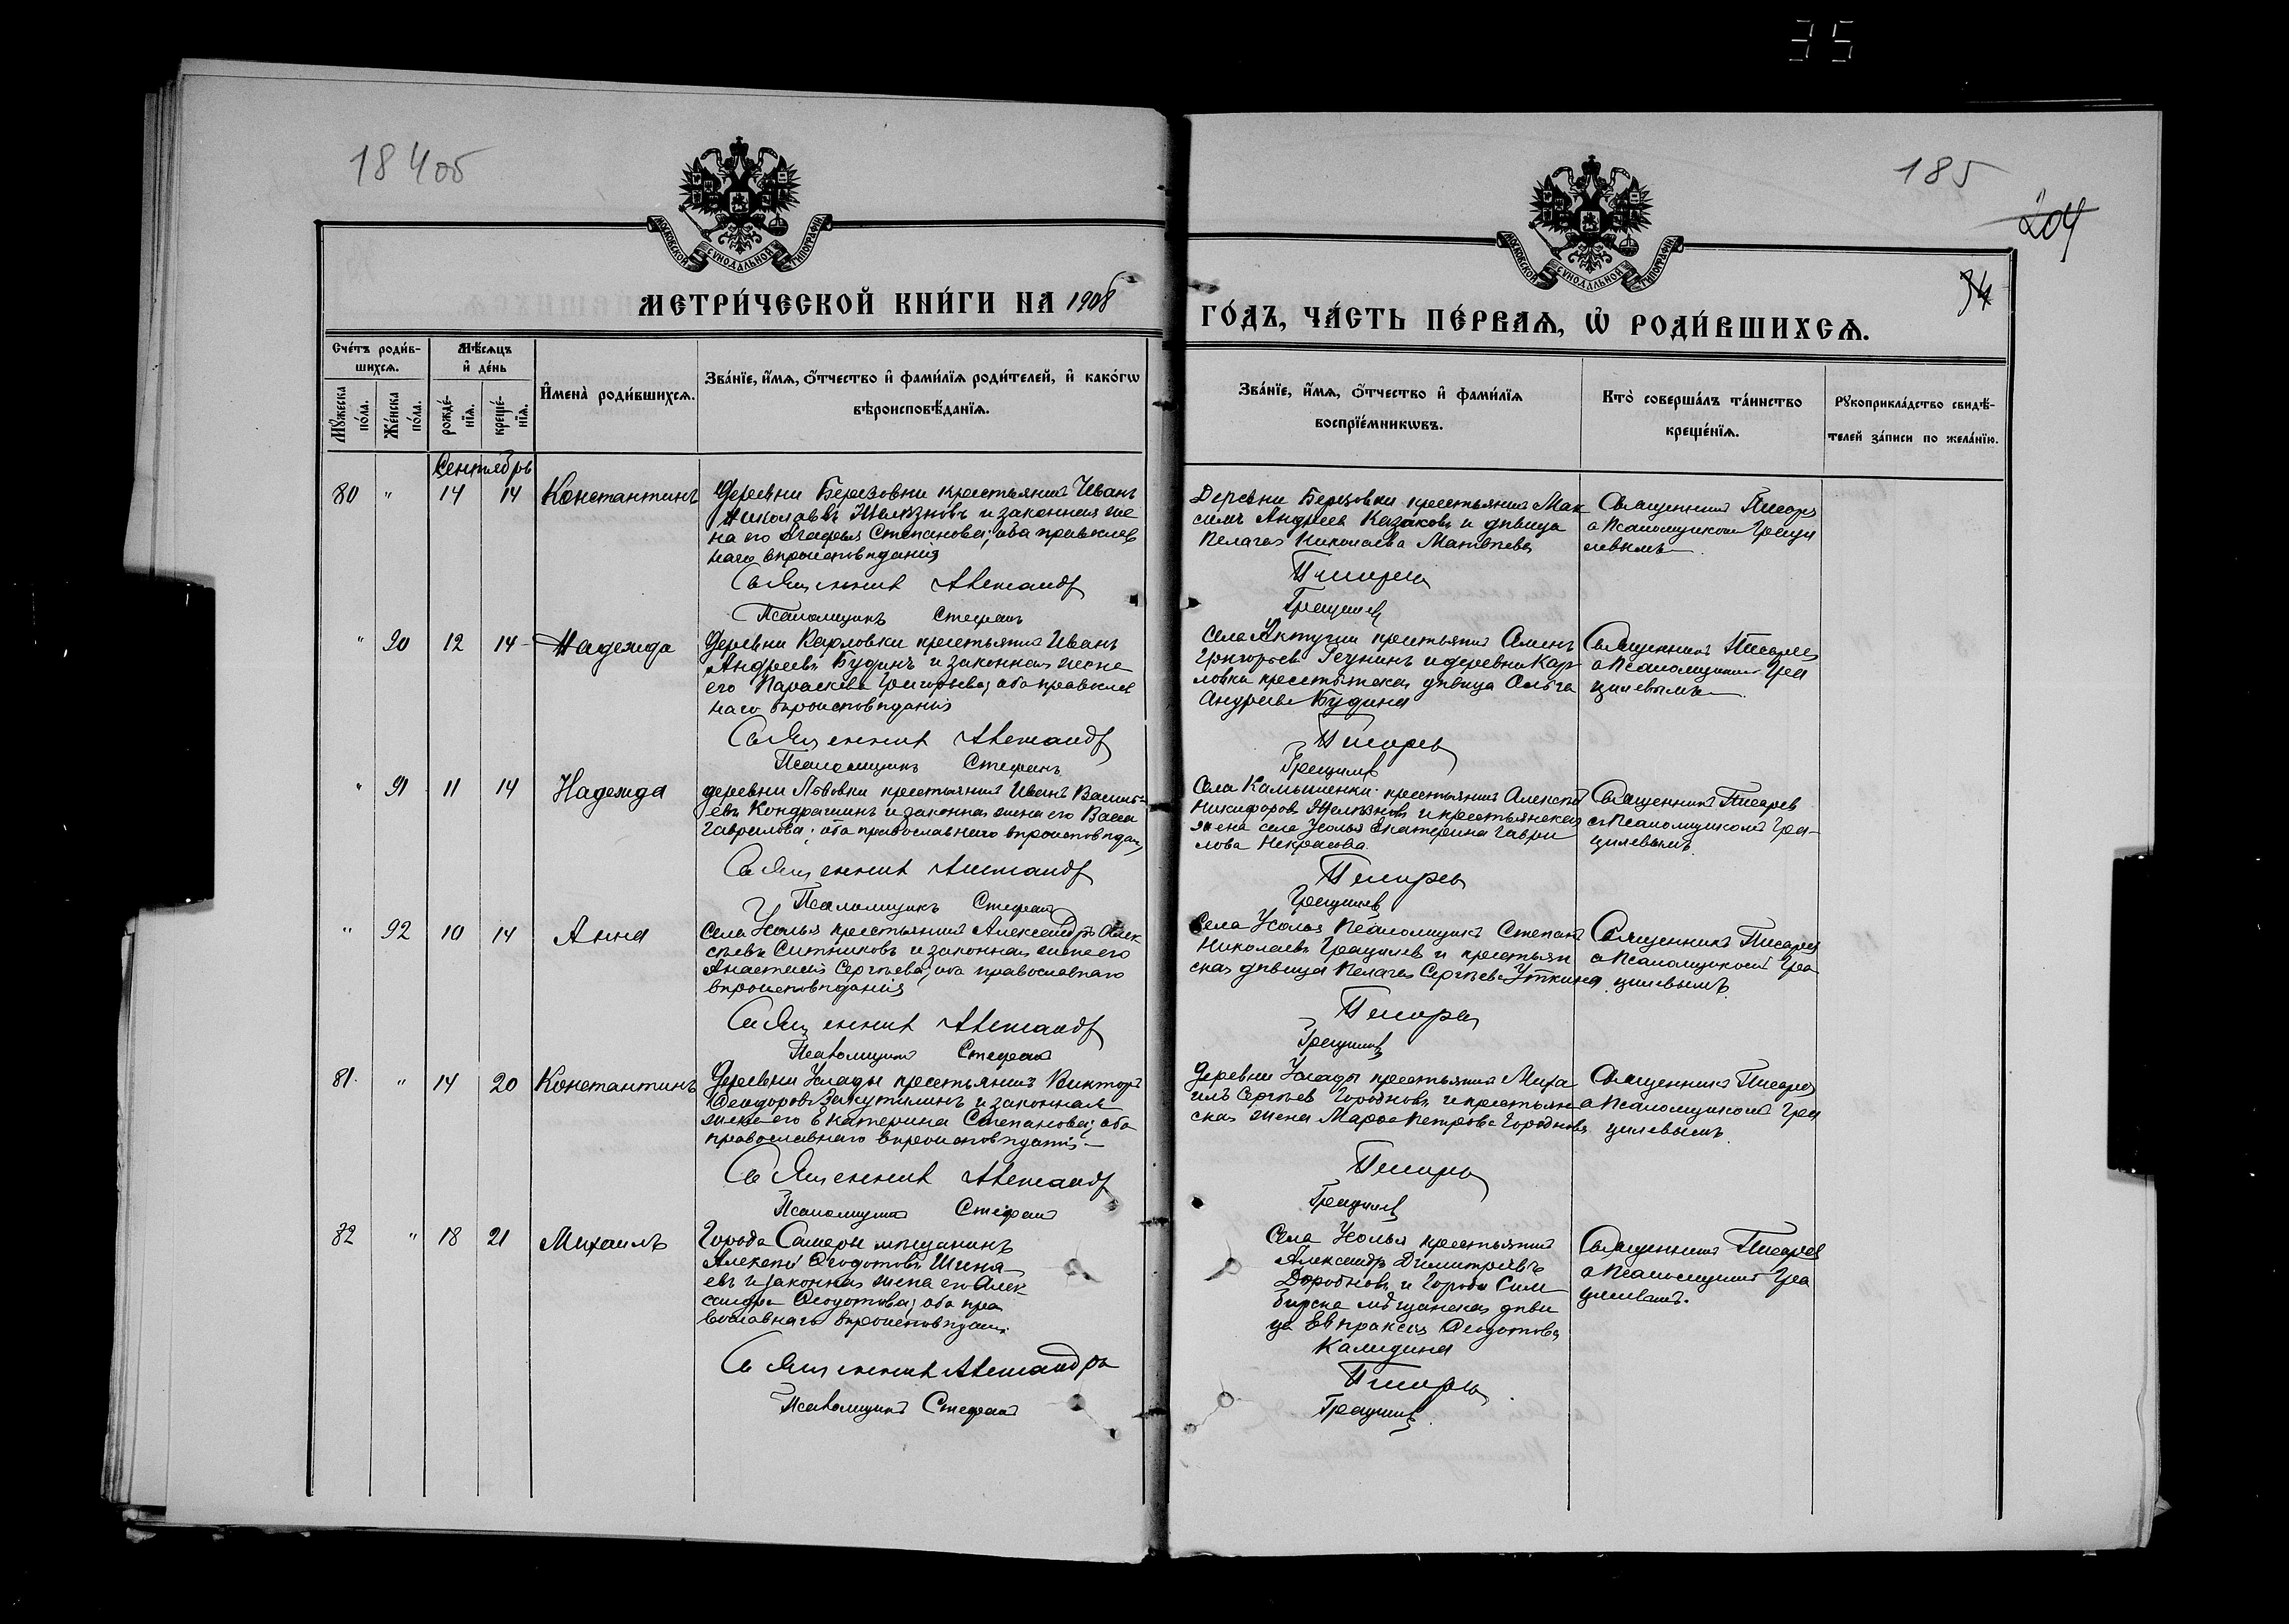 35
184 об
185
204
34
МОСКОВСКОЙ СУНОДАЛЬНОЙ ТИПОГРАФІИ
МОСКОВСКОЙ СУНОДАЛЬНОЙ ТИПОГРАФІИ
МЕТРИ́ЧЕСКОЙ КНИ́ГИ НА 1908
ГО́ДЪ, ЧА́СТЬ ПЕ́РВАѦ, Ѡ҆ РОДИ́ВШИХСѦ.
Сче́тъ роди́в-
шихсѧ.
Мꙋ́жеска
по́ла.
Же́нска
по́ла.
Мѣ́сѧцъ
и҆ де́нь
рожде́-
нїѧ.
креще́-
нїѧ.
И҆мена̀ роди́вшихсѧ.
Зва́нїе, и҆́мѧ, ѻ҆́тчество и҆ фами́лїѧ роди́телей, и҆ како́гѡ
вѣроисповѣ́данїѧ.
Зва́нїе, и҆́мѧ, ѻ҆́тчество и҆ фами́лїѧ
воспрїе́мникѡвъ.
Кто̀ соверша́лъ та́инство
креще́нїѧ.
Рꙋкоприкла́дство свидѣ́-
телей за́писи по жела́нїю.
Сентябрь
80 " 14 14 Константинъ
Деревни Березовки крестьянинъ Иванъ
Николаевъ Желѣзновъ и законная же
на его Агафья Степанова; оба православ
наго вѣроисповѣданія
Священникъ Александр
Псаломщикъ Стефанъ
Деревни Березовки крестьянинъ Мак
симъ Андреев Казаковъ и дѣвица
Пелагея Николаева Матвѣева
Писарев
Грацилев
Священникъ Писарев
с Псаломщикомъ Граци
левымъ
" 90 12 14 Надежда
Деревни Карловки крестьянинъ Иванъ
Андреевъ Будинъ и законная жена
его Параскева Григорьева; оба православ
наго вѣроисповѣданія
Священникъ Александр
Псаломщикъ Стефанъ
Села Актуши крестьянинъ
Григорьев и деревни Кар
ловки крестьянская дѣвица Ольга
Андреева Будина
Писарев
Грацилев
Священникъ Писарев
с Псаломщикомъ Гра
цилевымъ
" 91 11 14 Надежда
деревни крестьянинъ Иванъ Василь-
евъ Кондрашинъ и законная жена его Васса
Гаврилова; оба православнаго вѣроисповѣдан
Священникъ Александр
Псаломщикъ Стефанъ
Села Камышенки крестьянинъ Алексѣй
Никифоров Желѣзновъ и крестьянская
жена села Усолья Екатерина Гаври
лова Некрасова.
Писарев
Грацилев
Священникъ Писарев
съ Псаломщикомъ Гра-
цилевымъ
" 92 10 14 Анна
Села Усолья крестьянинъ Александръ Алек
сѣевъ Ситниковъ и законная жена его
Анастасія Сергѣева; оба православнаго
вѣроисповѣданія
Священникъ Александр
Псаломщикъ Стефанъ
Села Усолья Псаломщикъ Степанъ
Николаевъ Грацилев и крестьян
ская дѣвица Пелагея Сергѣева Уткина
Писарев
Грацилев
Священникъ Писарев
с Псаломщикомъ Гра
цилевымъ
81. " 14 20 Константинъ
Деревни Услады крестьянинъ Викторъ
Ѳеодоровъ Закутилинъ и законная
жена его Екатерина Степанова; оба
православнаго вѣроисповѣданія
Священникъ Александр
Псаломщикъ Стефанъ
Деревни Услады крестьянинъ Миха
илъ Сергѣев Городновъ и крестьян
ская жена Марѳа Петрова Городнова
Писарев
Грацилев
Священникъ Писарев
с Псаломщикомъ Гра
цилевымъ.
82 " 18 21 Михаилъ
Города Самары мѣщанинъ
Алексѣй Ѳеодотовъ Шина
евъ и законная жена его Алек
сандра Ѳеодотова; оба пра
вославнаго вѣроисповѣдан.
Священникъ Александръ
Псаломщикъ Стефанъ
Села Усолья крестьянинъ
Александръ Димитріевъ
Дороднов и города Сим
бирска мѣщанская дѣви
ца Евпраксія Ѳеодотова
Калядина
Писарев
Грацилев
Священникъ Писарев
с Псаломщикомъ Гра
цилевымъ.